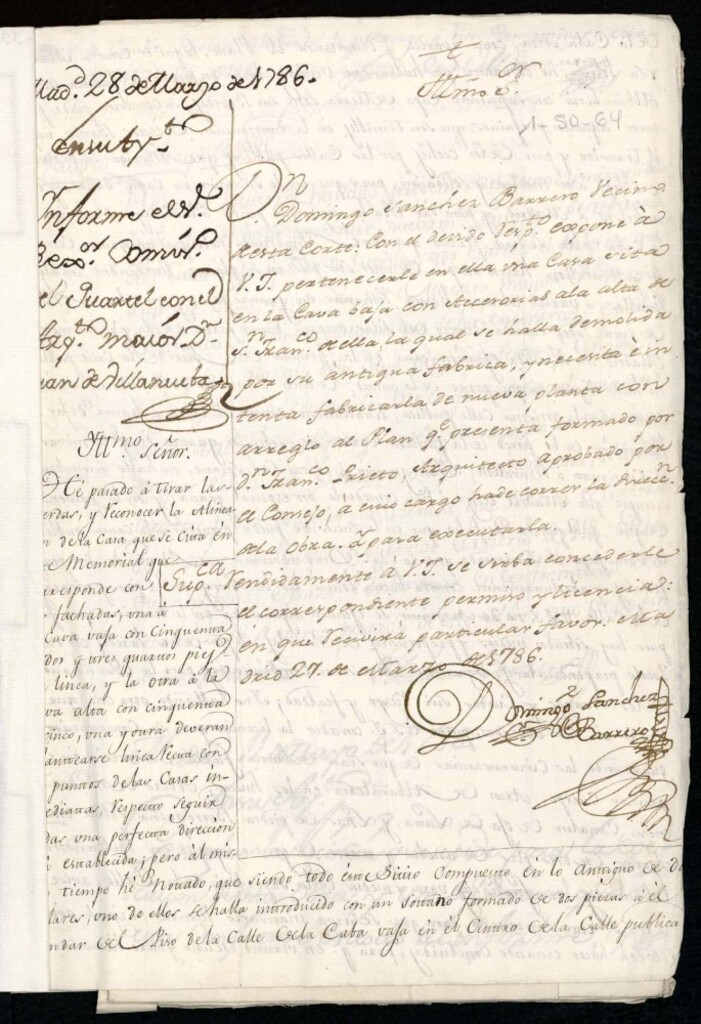 Mad.d 28 de Marzo de 1786.
Ill.mo S.r
1-50-64
En su Ay.to
Informe el S.r
Rex.or Comis.o
el Quartel con el
Arq.to maior D.n
Juan de Villanueba
D.n Domingo Sanchez Barrero Vecino
de esta Corte: Con el devido resp.to expone à
V.I. pertenecerle en ella una Casa sita
en la Cava baja con Accesorias ala alta de
S.n Fran.co de ella, la qual se halla demolida
por su antigua fabrica, y necesita è in
tenta fabricarla de nueva planta con
arreglo al Plan q.e presenta formado por
d.n Fran.co Prieto, Arquitecto aprobado por
el Consejo, a cuio cargo hade correr la direcc.n
de la obra. Y para executarla.
Sup.ca rendidamente á V.I. se sirba concederle
el correspondiente permiso y licencia:
en que recivirá particular favor. Ma
drid 27. de Marzo de 1786.
Domingo Sanchez
Barrero
Ill.mo Señor.
Hè pasado à tirar las
erdas, y reconocer la Aline
n de la Casa que se Cita en
e Memorial que
rresponde con
fachadas, una à
Cava vaja con Cinquenta
dos y tres quartos pies
linea, y la otra à la
va alta con cinquenta
inco, una y otra deveran
lantearse linea recta con
puntos de las Casas in-
ediatas, respecto seguir
das una perfecta direccion
i establecida; pero al mis
tiempo hè Notado, que siendo todo este Sitio Compuesto en lo Antiguo de
lares, uno de ellos se halla introducido con un Sotano formado de dos piezas à el
ndar del Piso de la Calle de la Caba vaja en el Centro de la Calle publica